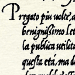 Pregato piu volte, 
benignissimo let
la publica utilita
questa eta, ma